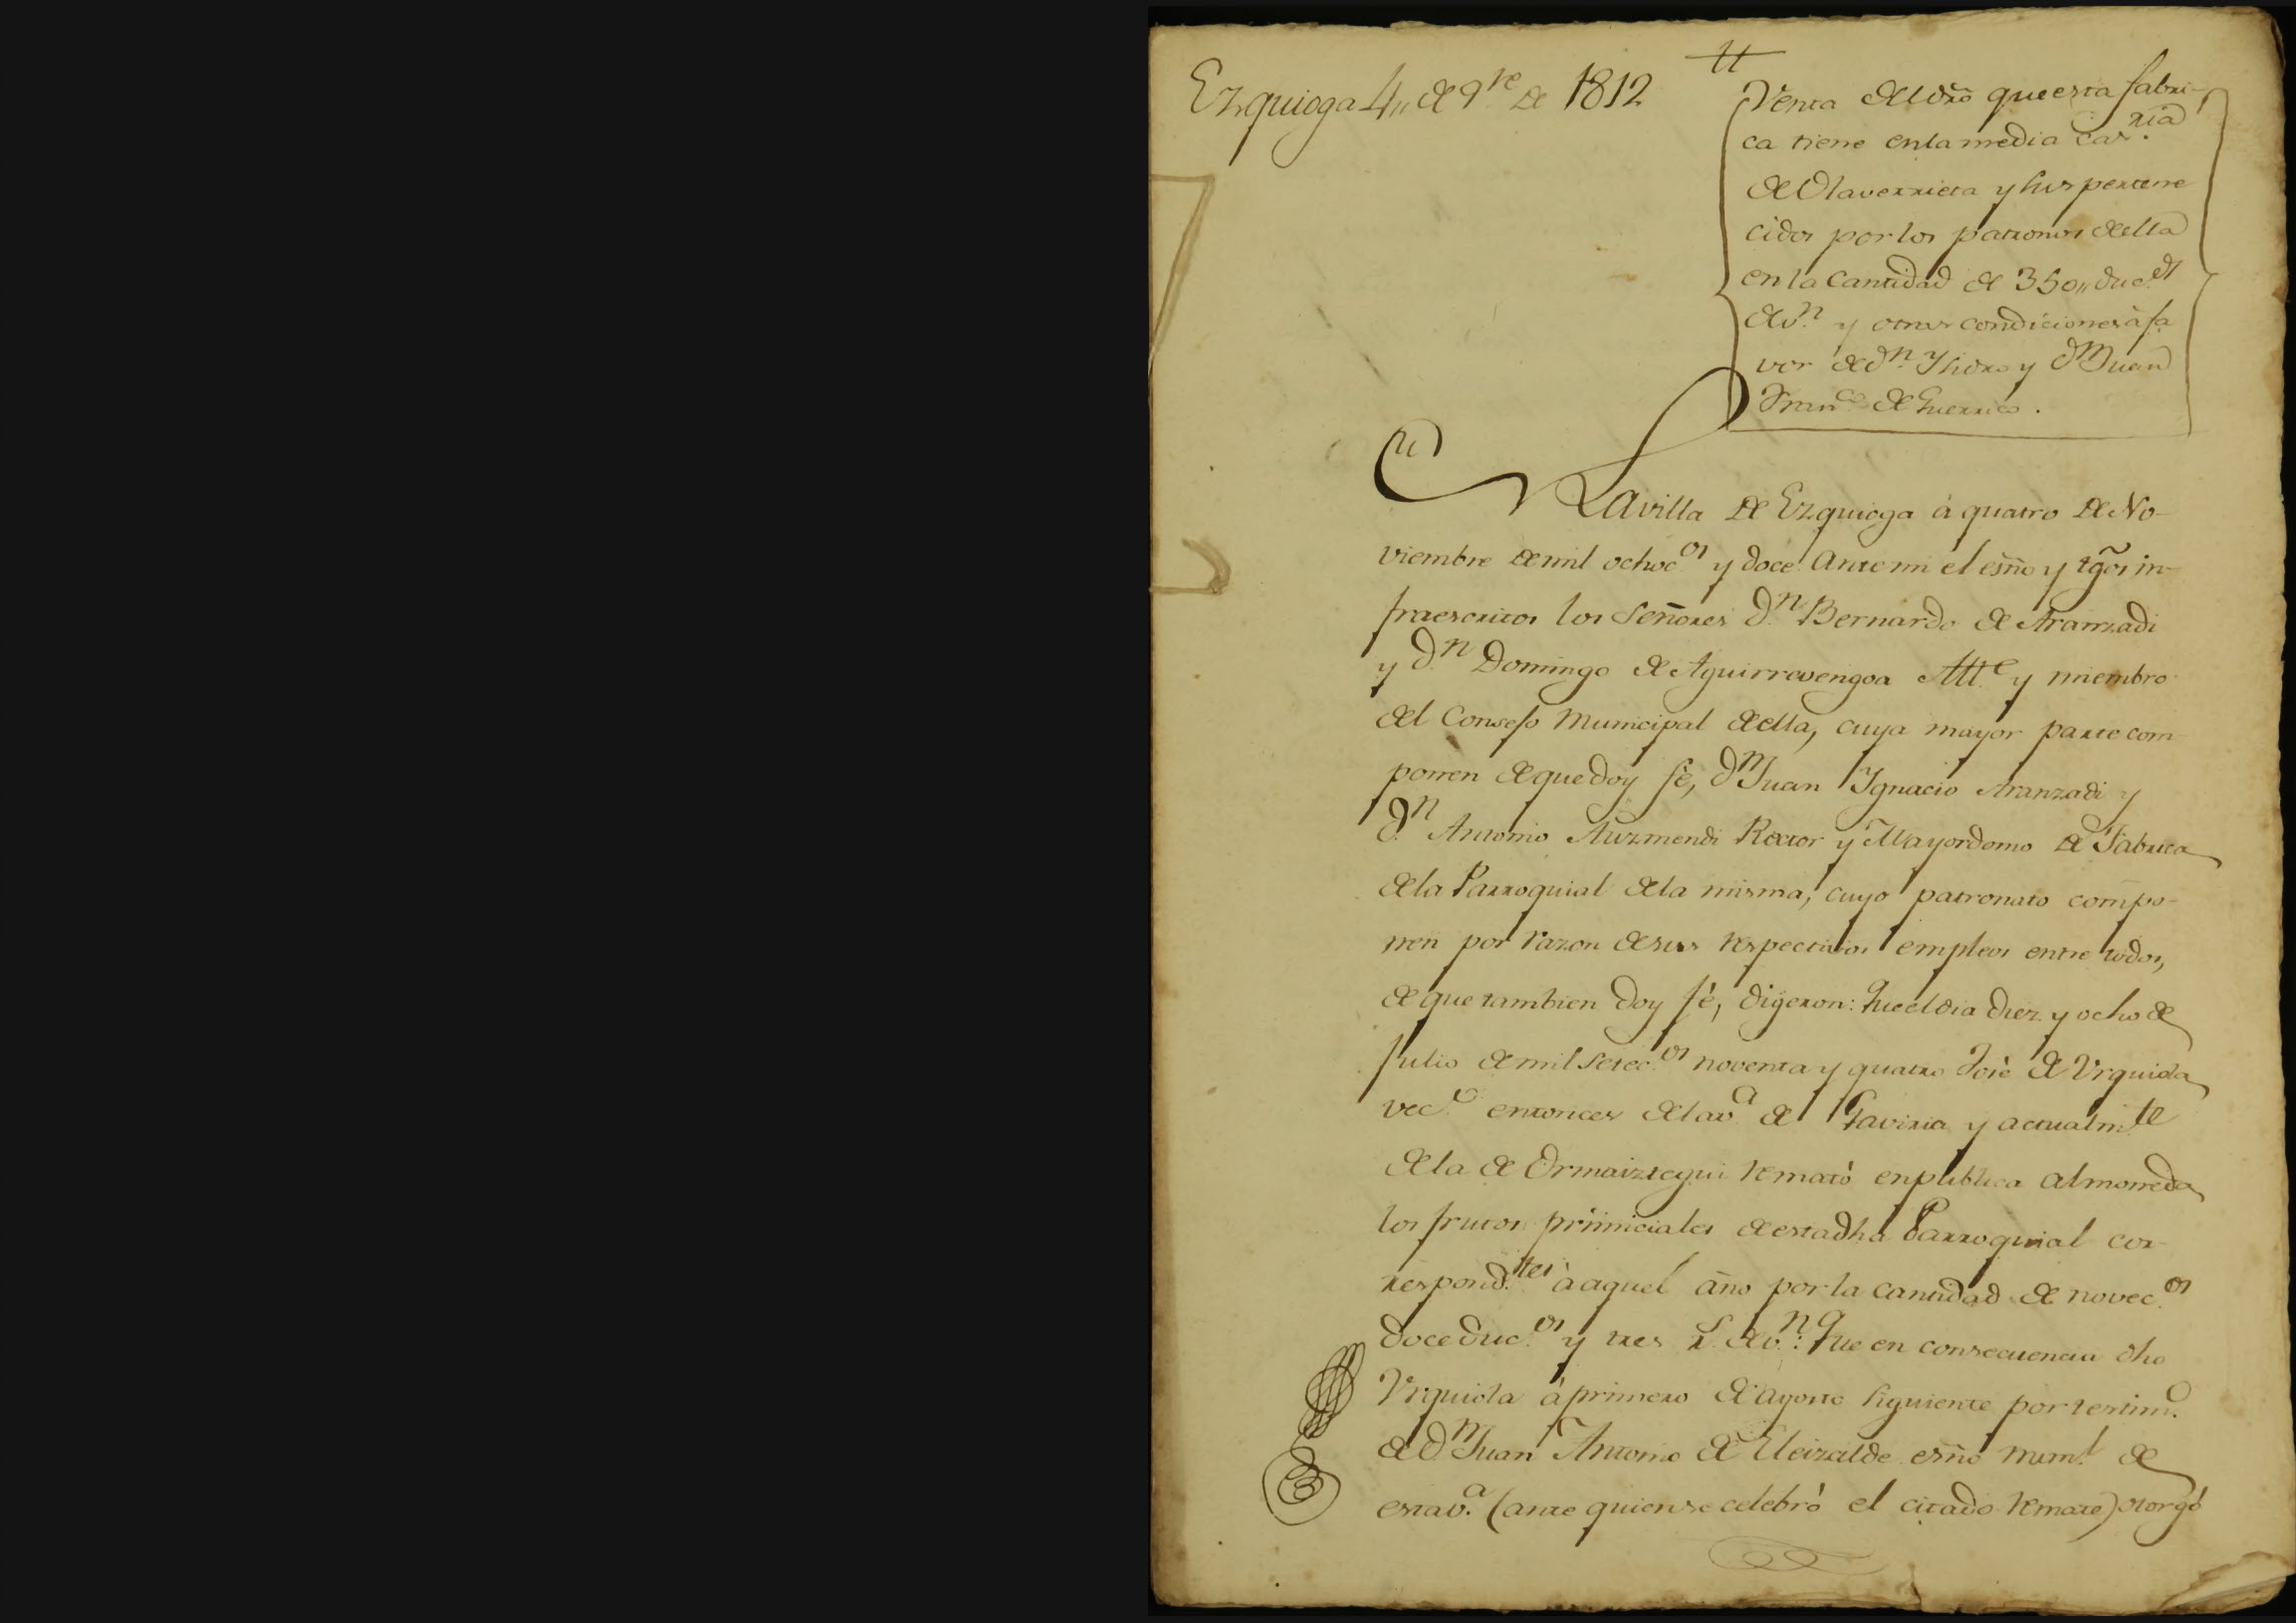 Ezquioga 4,, de 9.re de 1812
Venta del dro que esta fabri-
ca tiene en la media cas.ria
de Olaverrieta y sus pertene
cidos por los patronos de ella
en la cantidad de 350,, duc.os
de v.n y otras condiciones à fa
vor de d.n Ysidro y d.n Juan
Fran.co de Guerrico.
En
La villa de Ezquioga à quatro de No-
viembre de mil ochoc.os y doce ante mi el esño y tg̃os in-
fraescritos los Señores d.n Bernardo de Aranzadi
y d.n Domingo de Aguirrevengoa Alc.e y miembro
del Consejo Municipal de ella, cuya mayor parte com
ponen de que doy fè, d.n Juan Ygnacio Aranzadi y
d.n Antonio Auzmendi Rector y Mayordomo de Fabrica
de la Parroquial de la misma, cuyo patronato compo-
nen por razon de sus respectivos empleos entre todos,
de que tambien doy fè, digeron: Que el dia diez y ocho de
Julio de mil setec.os noventa y quatro Josè de Urquiola
vec.o entonces de la v.a de Gaviria y actualm.te
de la de Ormaiztegui remató en publica almoneda
los frutos primiciales de esta dha Parroquial cor-
respond.tes à aquel año por la cantidad de novec.os
doce duc.os y tres r.s de v.n: Que en consecuencia dho
Urquiola à primero de Agosto siguiente por testim.o
de d.n Juan Antonio de Eleizalde esño num.l de
esta v.a (ante quien se celebrò el citado remate) otorgó